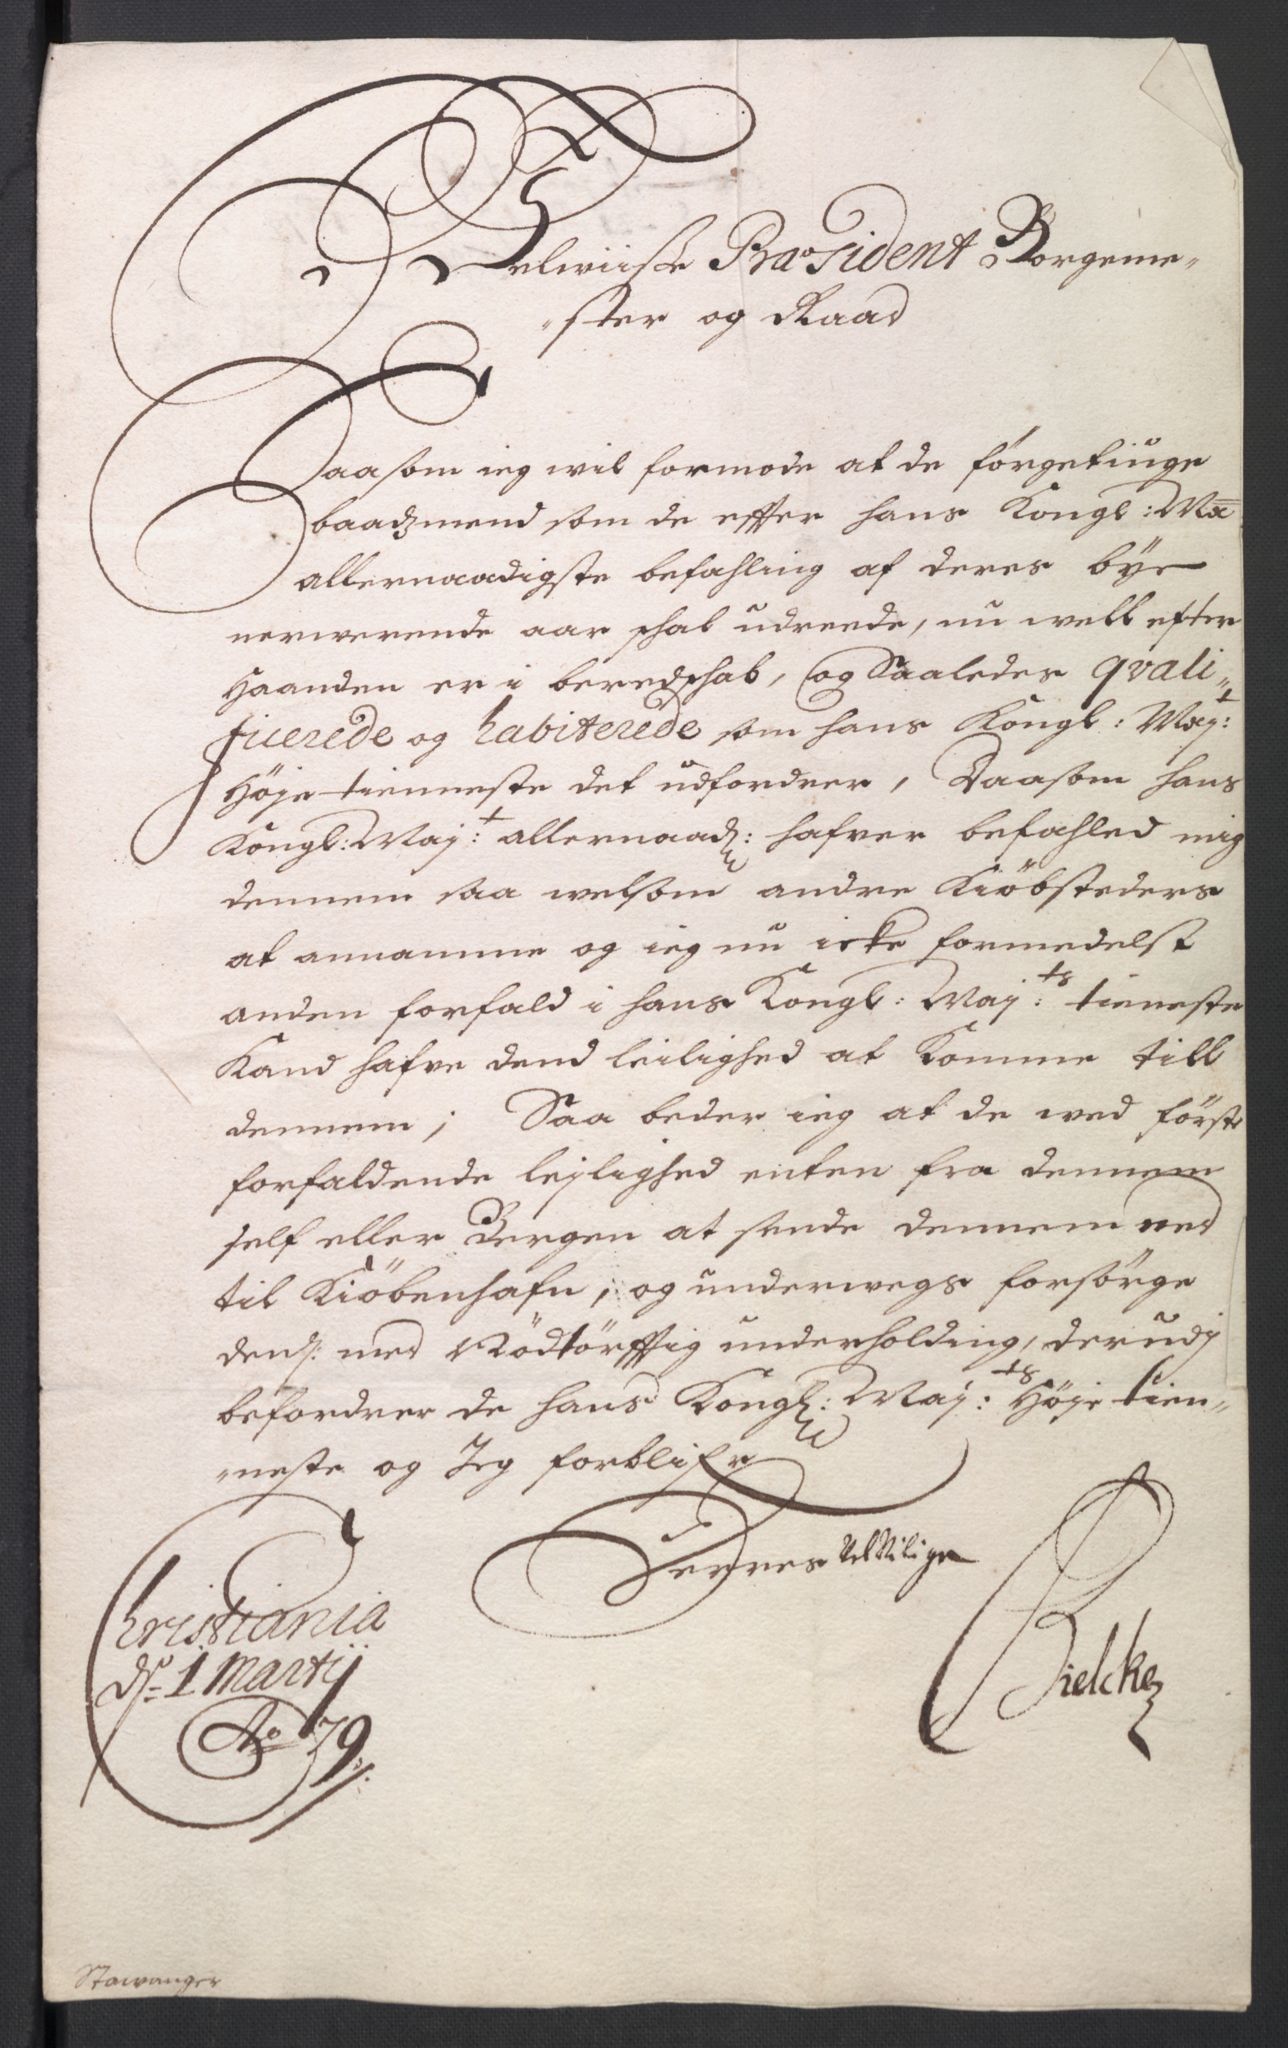 Velwiise Præsident Borgeme-
-ster og Raad
Saasom ieg wil formode at de förgetiuge
baadzmend som de effter hans Kongl: Ma
allernaadigste befahling af deres bÿe
nerwerende aar schal udreede, nu well efter
haanden er i beredschab, og saaledes qvali-
ficerede og habiterede som hans Kongl: Maÿ:t
Höÿe tienneste det udfordrer, Saasom hans
Kongl: Maÿ:t allernaad: hafver befahled mig
dennem saa welsom andre Kiöbsteders
at annamme og ieg nu icke formedelst
anden forfald i hans Kongl: Maÿ:ts tieneste
Kand hafve dend leilighed at komme till
dennem; Saa beder ieg at de wed förste
forfaldende lejlighed enten fra dennem
self eller Bergen at sende dennem ned
til Kiöbenhafn, og underwegs forsörge
den: med Nödtörfftig underholding, derudj
befordrer de hans Kongl: Maÿ:ts Höÿe tien-
-neste og Jeg forblifr
Deres VelVilige
Christiania
ds: 1 Martij
Ao 79
Bielche
Stawanger